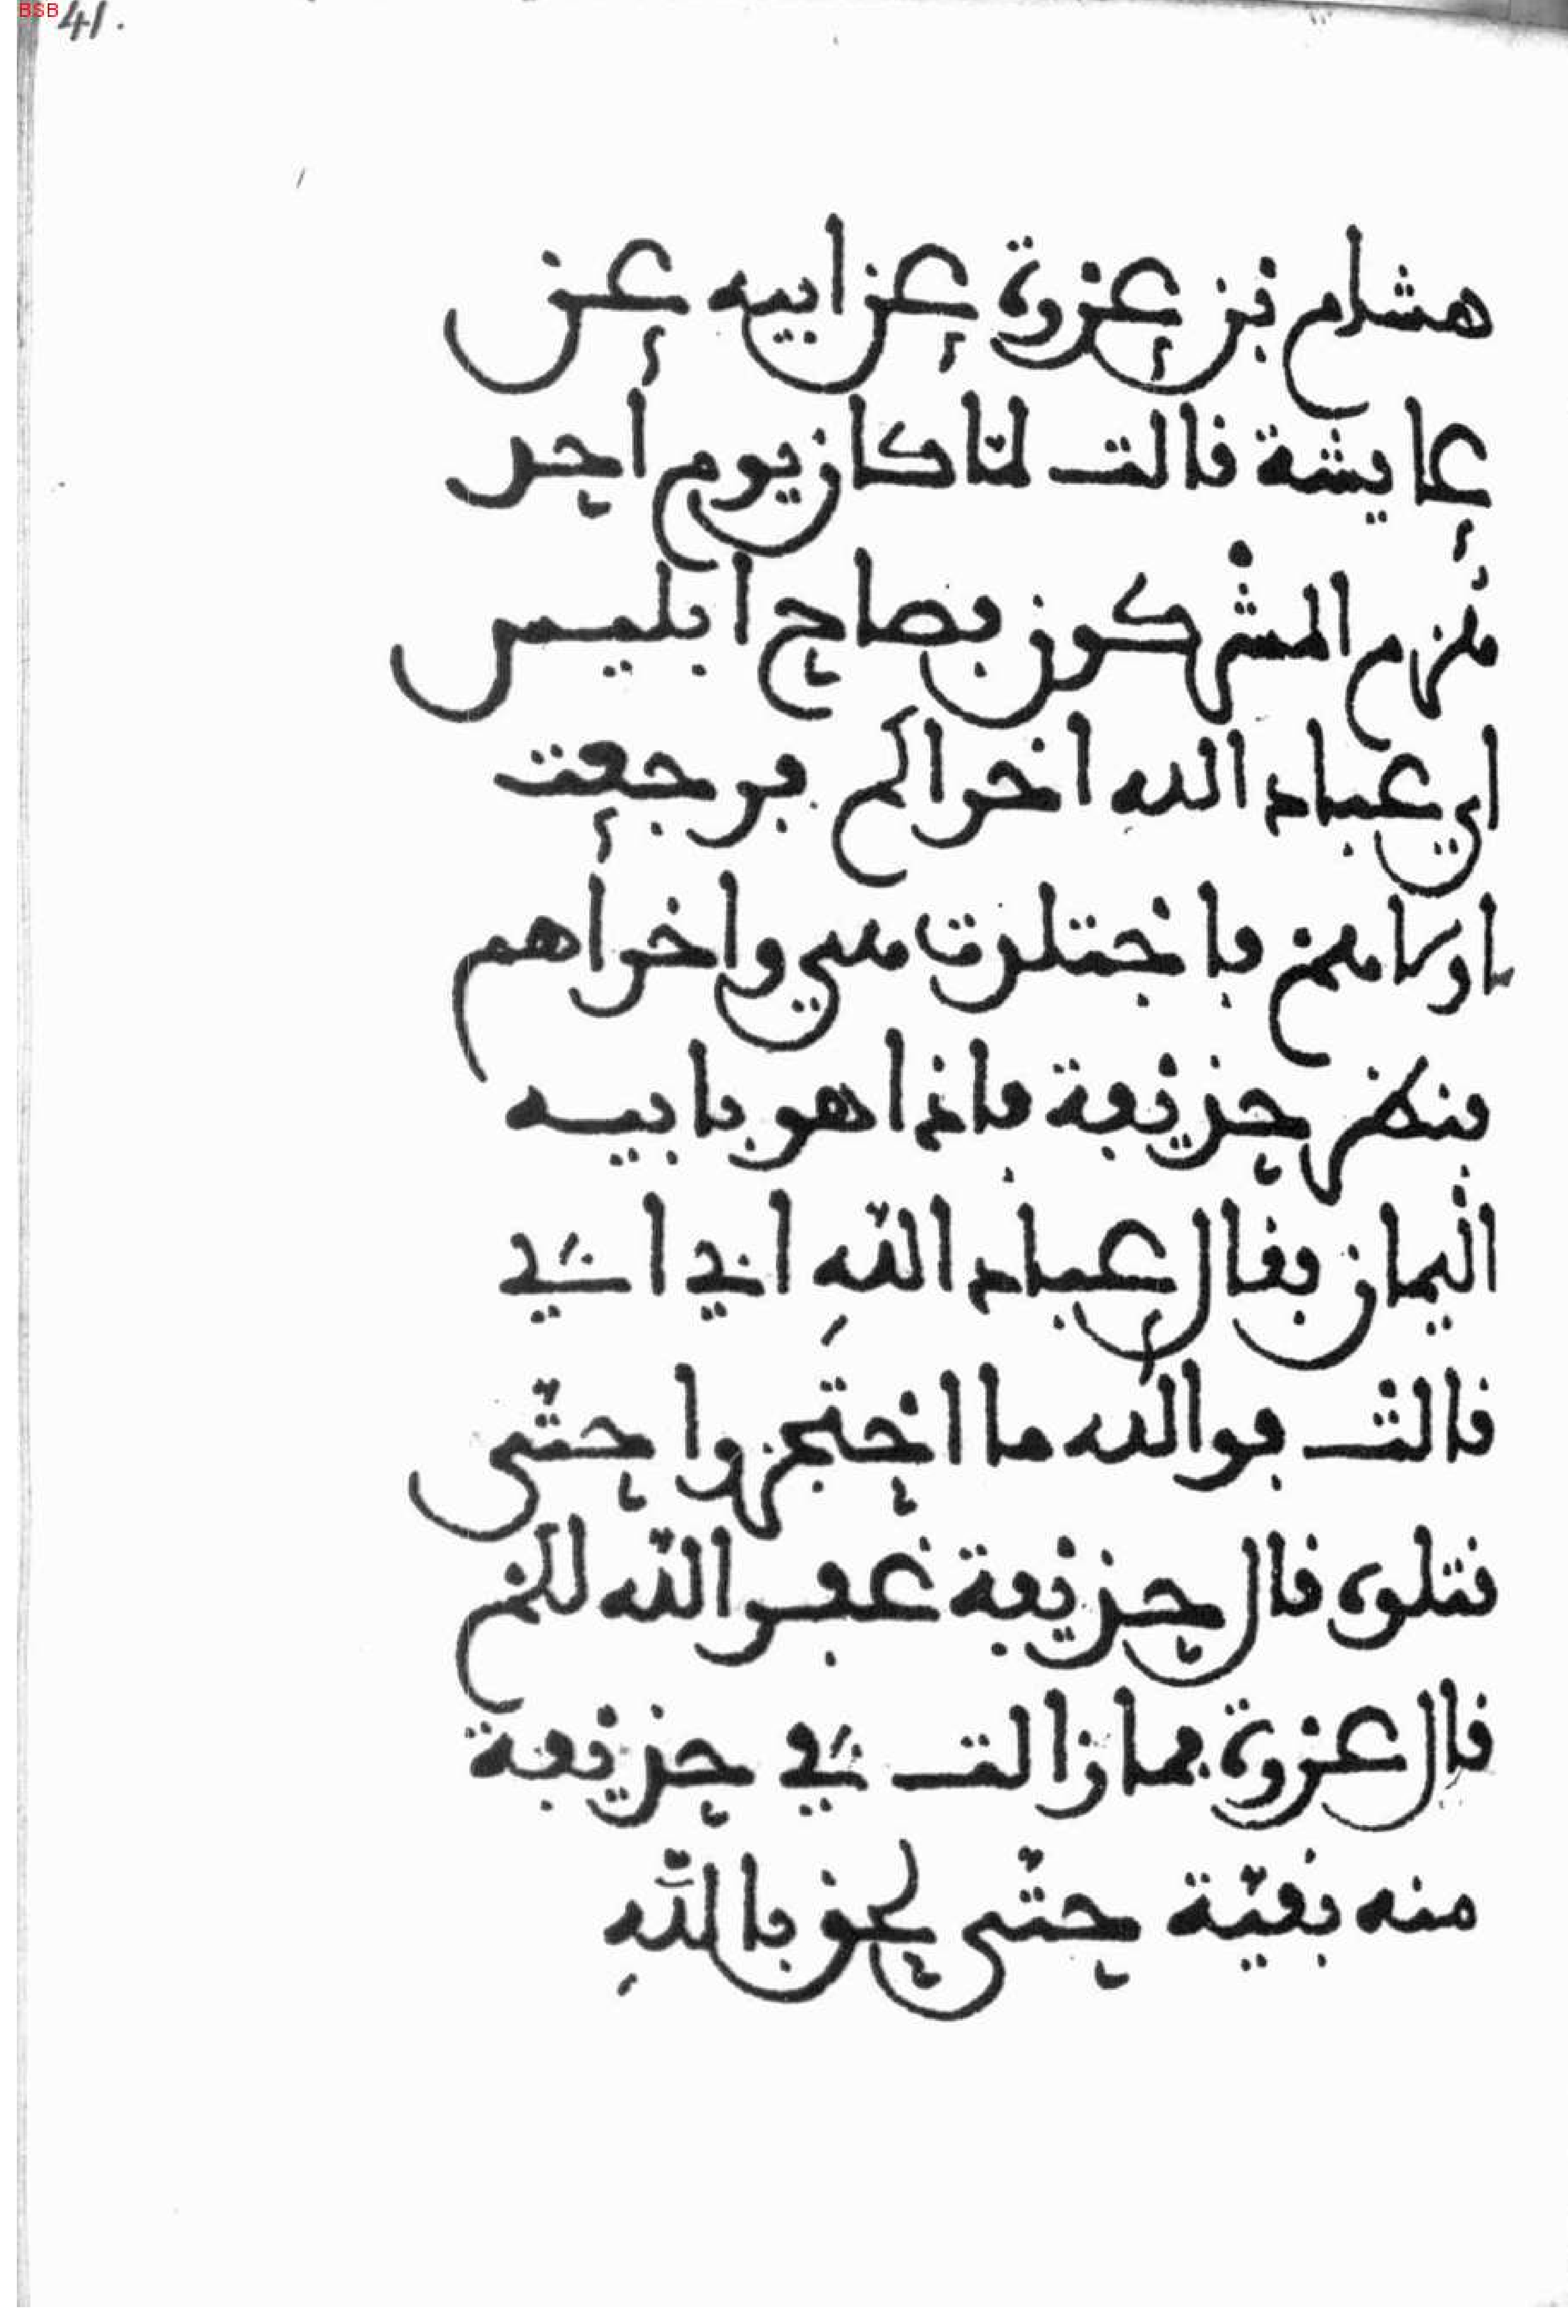 BSB 41.
هشام بن عروة عن ابيه عن
عايشة قالت لما كان يوم احد
هزم المشركون فصاح ابليس
اي عباد الله اخراكم فرجعت
اولاهم فاجتلدت هي واخراهم
فنظر حذيفة فاذا هو بابيه
اليمان فقال عباد الله ابي ابي
قالت فوالله ما احتجزوا حتى
قتلوه قال حذيفة غفر الله لكم
قال عروة فما زالت في حذيفة
منه بقية حتى لحق بالله